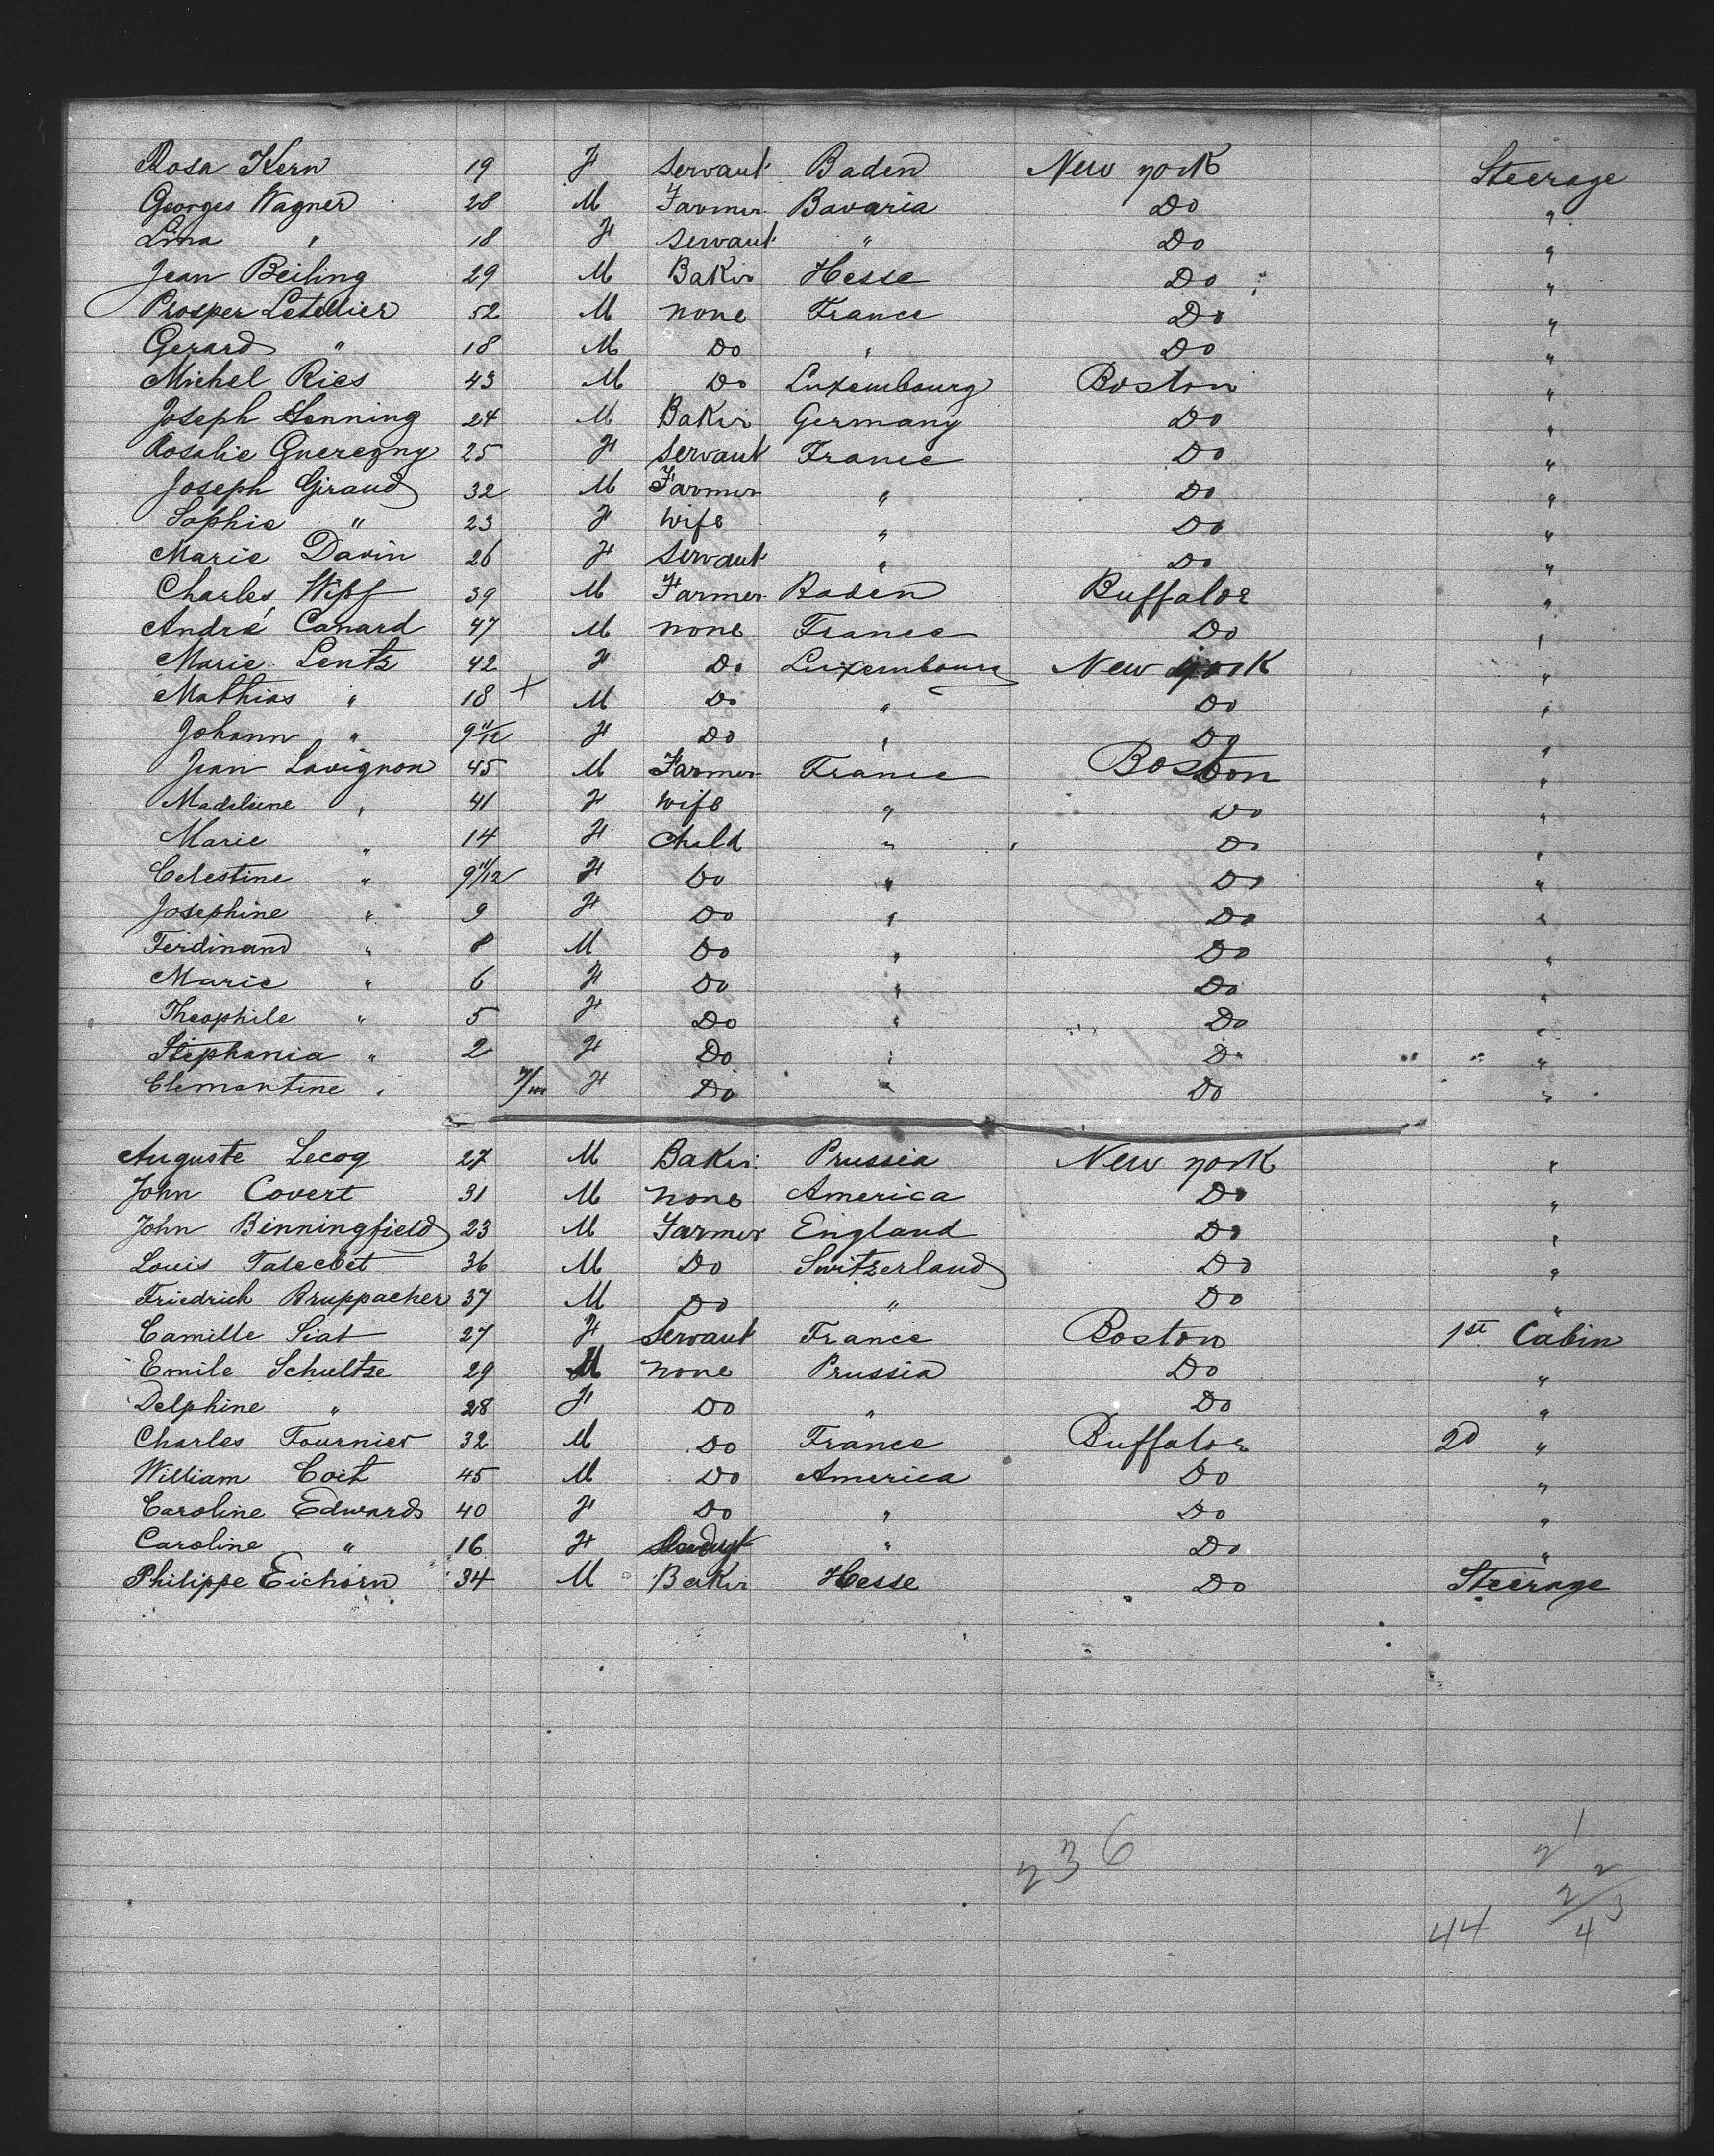 Rosa Kern 19 F Servant Baden New York Steerage
Georges Wagner 28 M Farmer Bavaria Do "
Lina " 18 F Servant " Do "
Jean Beiling 29 M Baker Hesse Do "
Prosper Letellier 52 M none France Do "
Gerard " 18 M Do " Do "
Michel Ries 43 M Do Luxembourg Boston "
Joseph Henning 24 M Baker Germany Do "
Rosalie Queregny 25 F Servant France Do "
Joseph Giraud 32 M Farmer " Do "
Sophie " 23 F Wife " Do "
Marie Davin 26 F Servant " Do "
Charles Wipf 39 M Farmer Baden Buffalo "
André Canard 47 M none France Do "
Marie Lentz 42 F Do Luxembourg New York "
Mathias " 18 + M Do " Do "
Johann " 9 11/12 F Do " Do "
Jean Lavignon 45 M Farmer France Boston "
Madeleine " 41 F Wife " Do "
Marie " 14 F Child " Do "
Celestine " 9 11/12 F Do " Do "
Josephine " 9 F Do " Do "
Ferdinand " 8 M Do " Do "
Marie " 6 F Do " Do "
Theophile " 5 F Do " Do "
Stephania " 2 F Do " Do "
Clemantine " F Do " Do "
Auguste Lecoq 27 M Baker Prussia New York "
John Covert 31 M none America Do "
John Binningfield 23 M Farmer England Do "
Louis 36 M Do Switzerland Do "
Friedrich Bruppacher 37 M Do " Do "
Camille Siat 27 F Servant France Boston 1st Cabin
Emile Schultze 29 M none Prussia Do "
Delphine " 28 F Do " Do "
Charles Fournier 32 M Do France Buffalo 2d "
William Coit 45 M Do America Do "
Caroline Edwards 40 F Do " Do "
Caroline " 16 F " Do "
Philippe Eichorn 34 M Baker Hesse Do Steerage
236
44